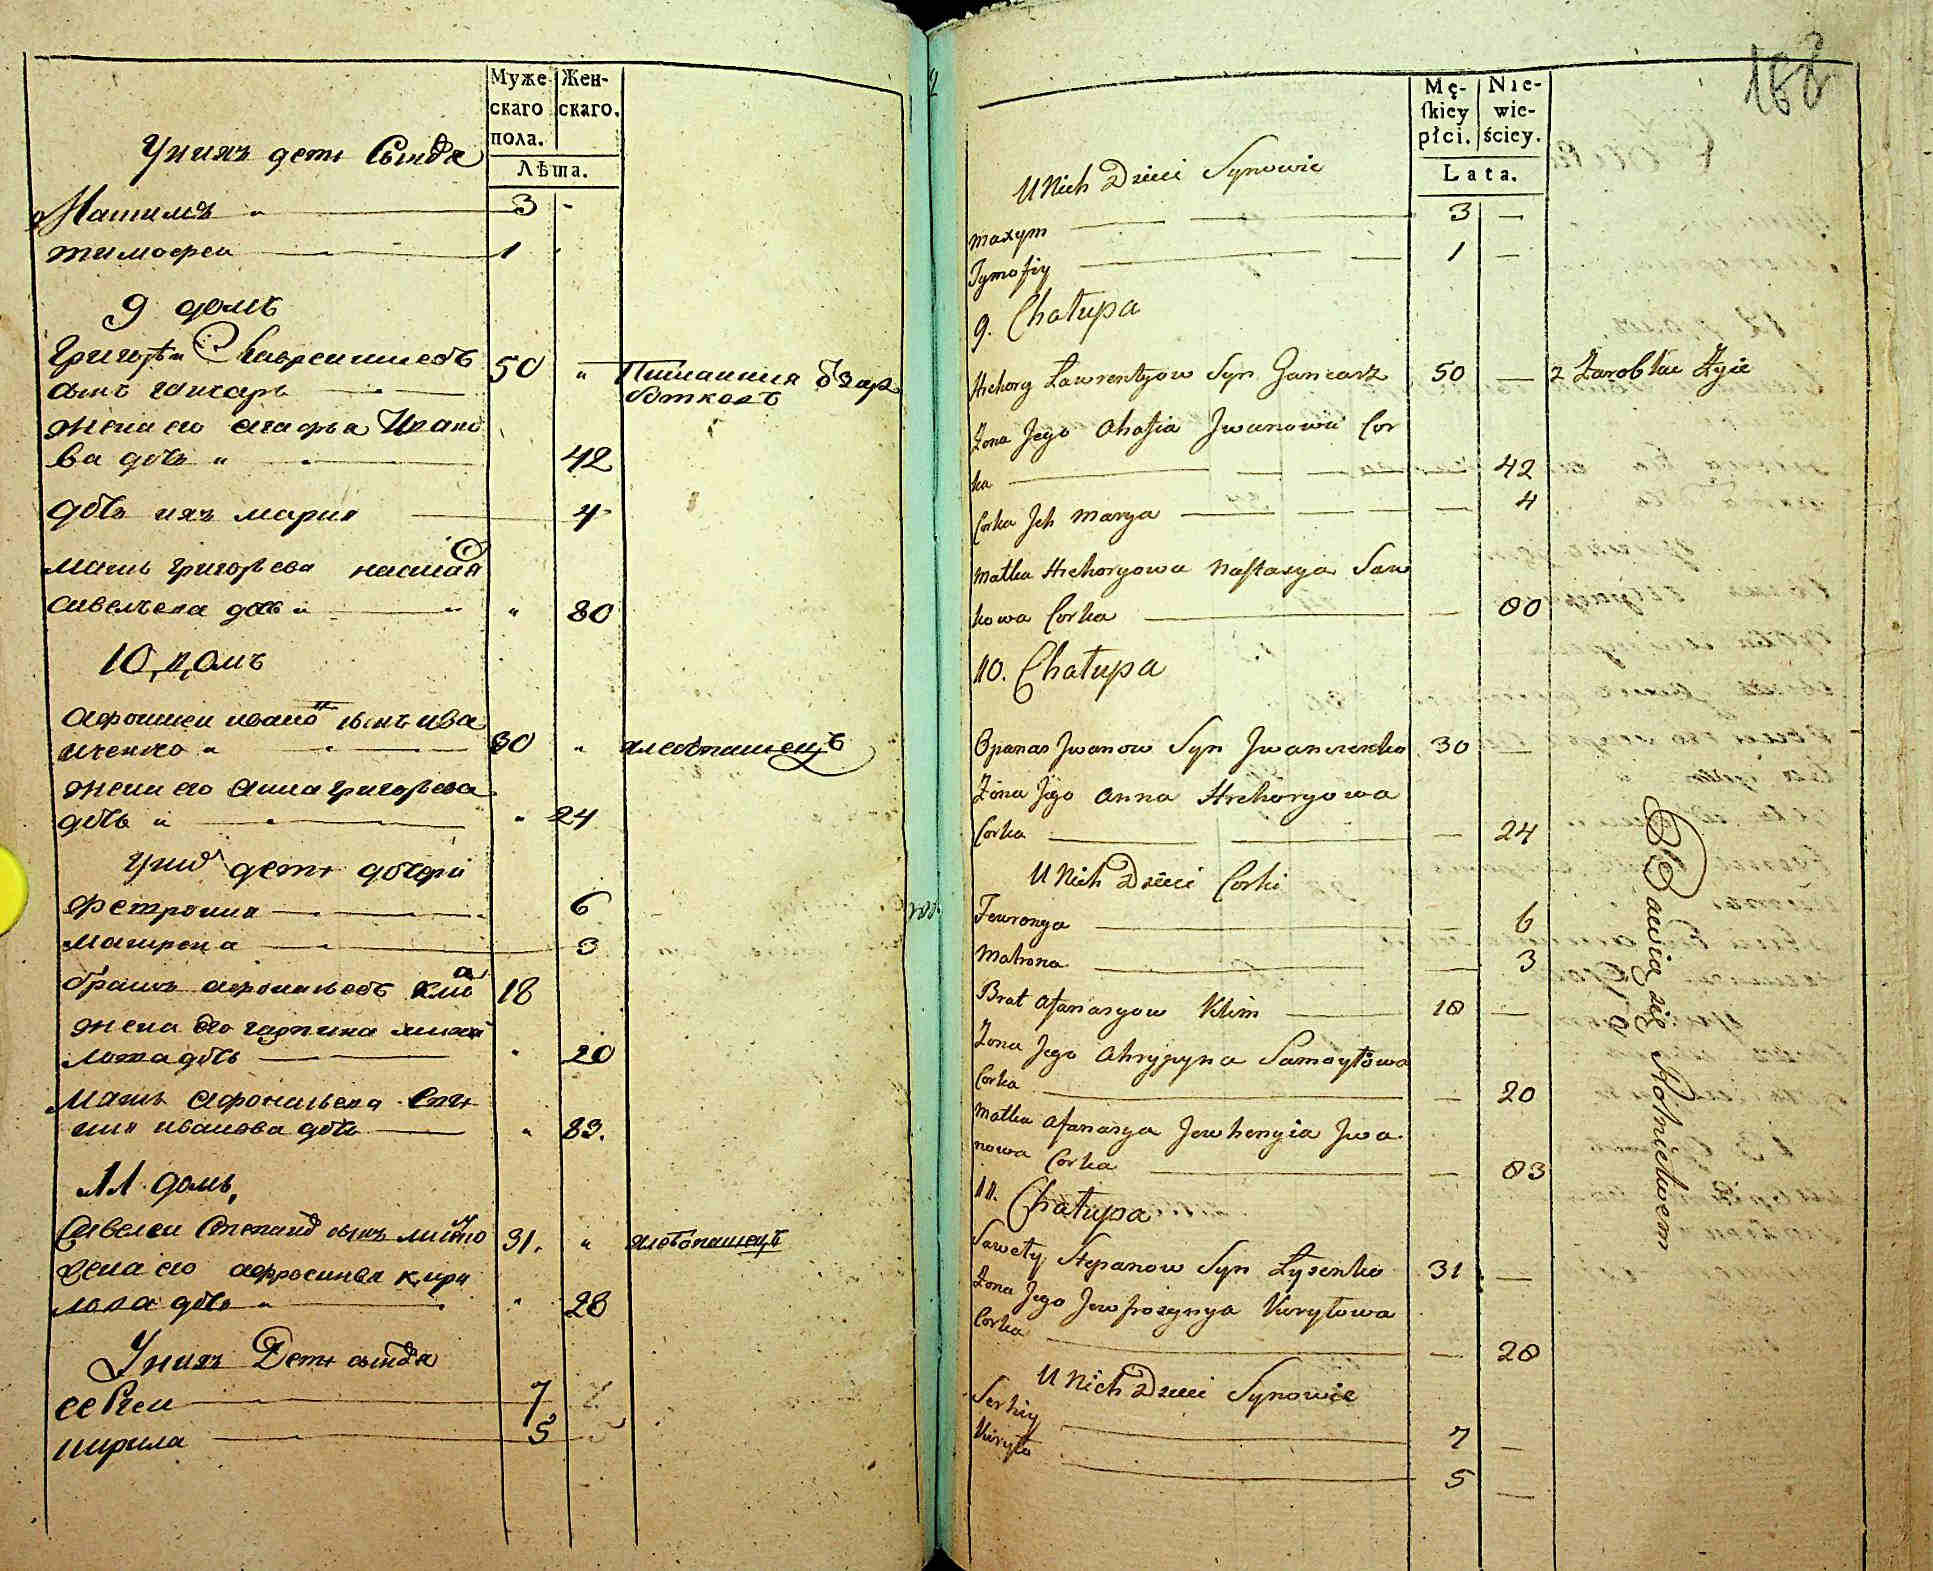 Муже-
скаго
пола.
Жен-
скаго.
Лѣта.
У нихъ дети Сыновя
Матимъ 3
тимофеи 1
9 домъ
Григорѣи Лаврентиевъ 50 Питаиция от зара
сынъ ганчаръ ботковъ
жена его агафья Ивано
ва дочь 42
дочь ихъ мария 4
мать григорьева настася
савельева дочь 80
10, домъ
афонасеи ивановъ сынъ ива
ненко 30 хлебопашецъ
жена его анна григорьева
дочь 24
у нихъ дети дочери
фетрониа 6
матрена 3
братъ афонасьевъ клим 18
жена его гарпина михаи
лова дочь 20
мать афонасьева евгѣ
ния иванова дочь 83.
11 домъ,
Савелеи Степановъ сынъ лисенко 31. хлебопашецъ
жена его афросинья кири
лова дочь 28
У нихъ Дети сыновя
сергеи 7
кирила 5
182
Mę-
skiey
płci.
Nie-
wie-
ściey.
Lata.
U Nich Dzieci Synowie
Maxym 3
Tymofiy 1
9. Chałupa
Hrehory Ławrentyow Syn Ganczarz 50 z Zarobku Żyie
Żona Jego Ahafia Jwanowa Cor
ka 42
Corka Jch Marya 4
Matka Hrehoryowa Nastasya Saw
kowa Corka 80
10. Chałupa
Opanas Jwanow Syn Jwanienko 30
Żona Jego Anna Hrehoryowa
Corka 24
U Nich Dzieci Corki
Fewronya 6
Matrona 3
Brat Afanasyow Klim 18
Żona Jego Ahrypyna Samoyłowa
Corka 20
Matka Afanasya Jewhenyia Jwa
nowa Corka 83
11. Chałupa
Saweły Stepanow Syn Łysenko 31
Żona Jego Jewfrosynya Kuryłowa
Corka 28
U Nich Dzieci Synowie
Serhiy 7
Kuryło 5
Bawią się Rolnictwem